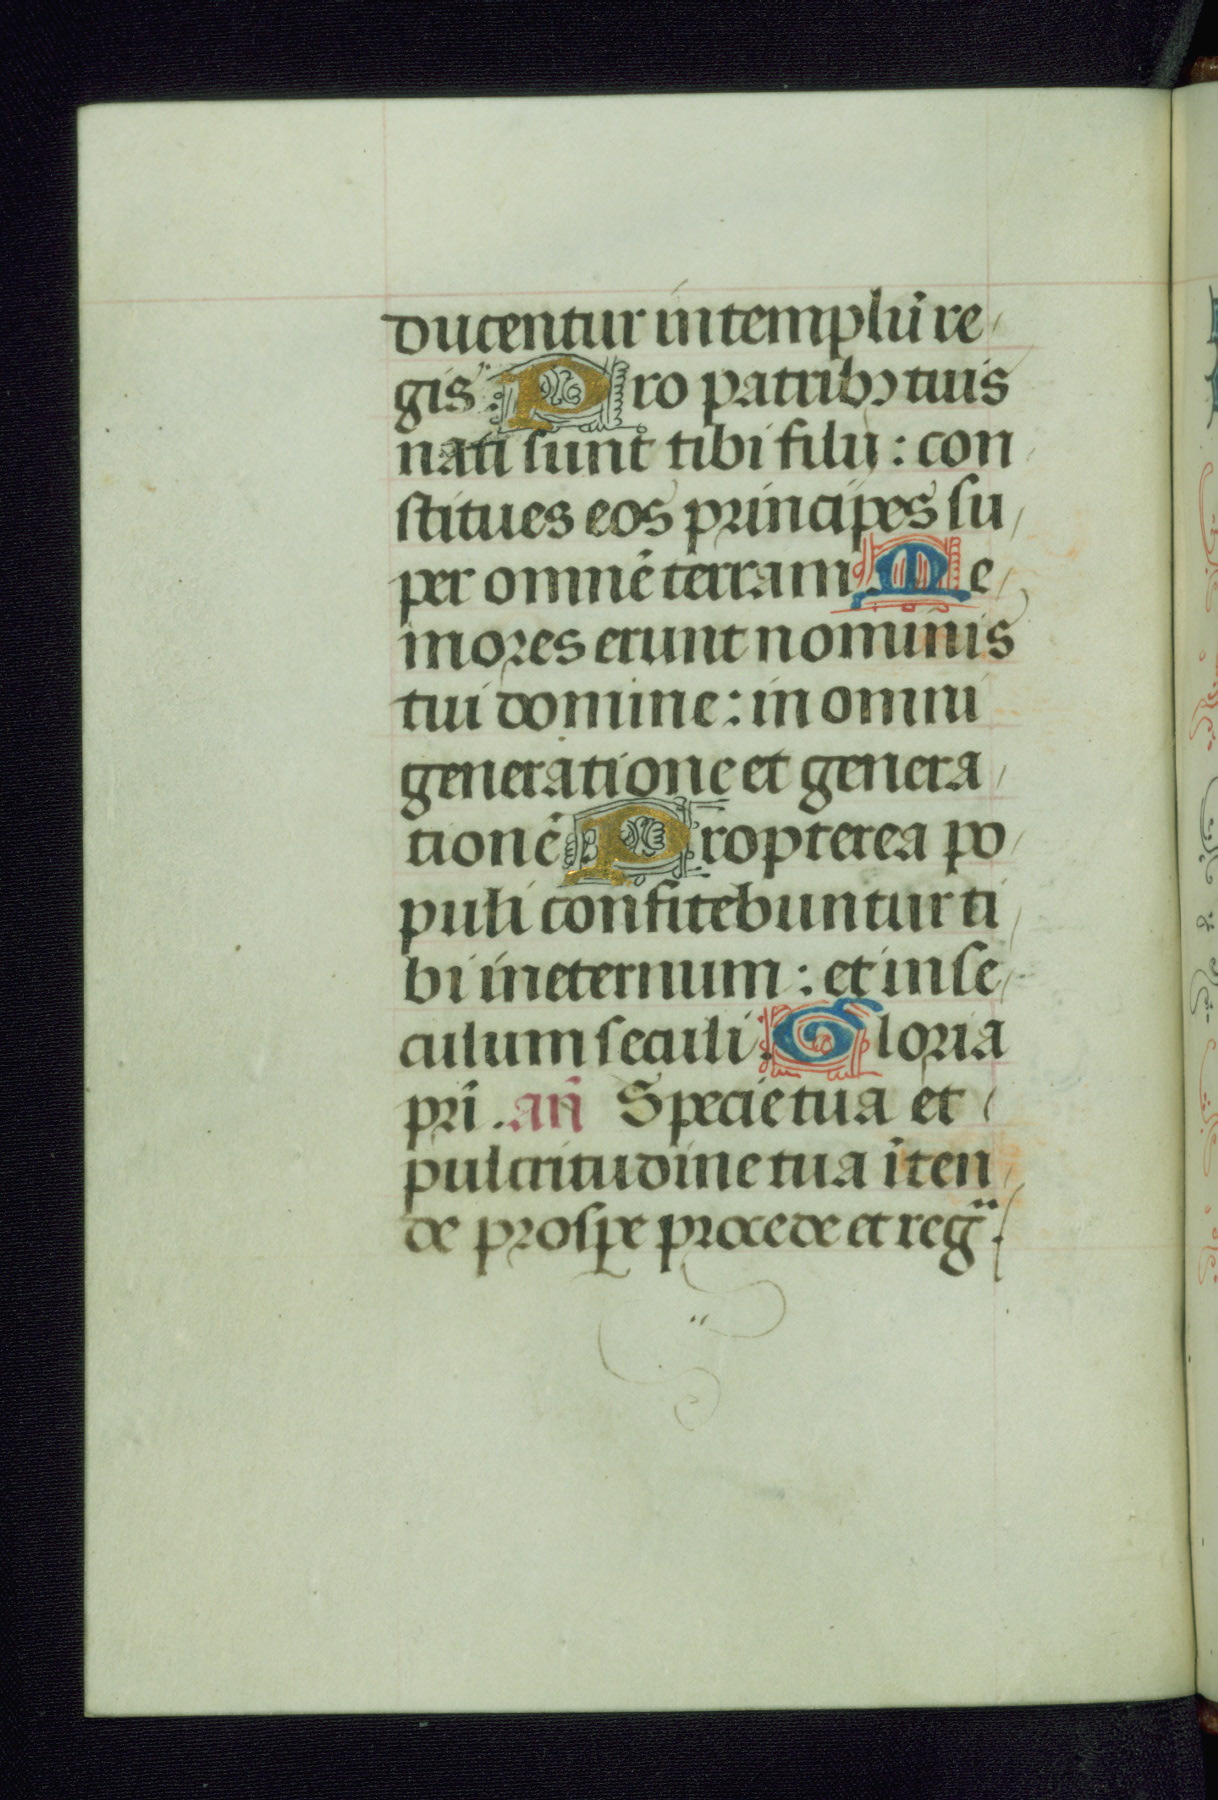 ducentur in templū re
gis. Pro patribꝰ tuis
nati sunt tibi filij : con
stitues eos principes su
per omnē terram. Me
mores erunt nominis
tui domine : in omni
generatione et genera
tionē. Propterea po
puli confitebuntur ti
bi in eternum : et in se
culum seculi. Gloria
pr̄i . an̄ Specie tua et
pulcritudine tua īten
de prospe procede et reg̈.